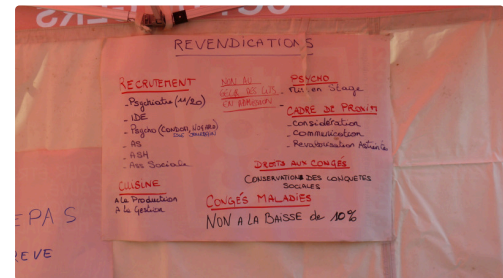 REVENDICATIONS
RECRUTEMENT
- Psychiatres (11/20)
- IDE
- Psycho
- AS
- ASH
- Ass Sociale
CUISINE
A la Production
A la Gestion
NON AU
GEL DES LITS
EN
PSYCHO
- Mis en Stage
CADRE DE PROXIM
- Considération
- Communication
- Revalorisation Astreinte
DROITS AUX CONGÉS
CONSERVATIONS DES CONQUETES
SOCIALES
CONGÉS MALADIES
NON A LA BAISSE de 10%
EPAS
REVE